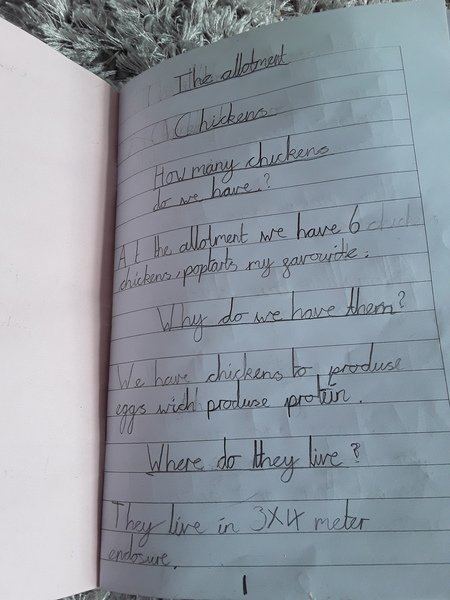 The allotment
Chickens
How many chickens
do we have?
At the allotment we have 6
chickens, poptarts my gavourite.
Why do we have them?
We have chickens to produse
eggs wich produse protin.
Where do they live?
They live in 3X4 meter
enclosure.
1